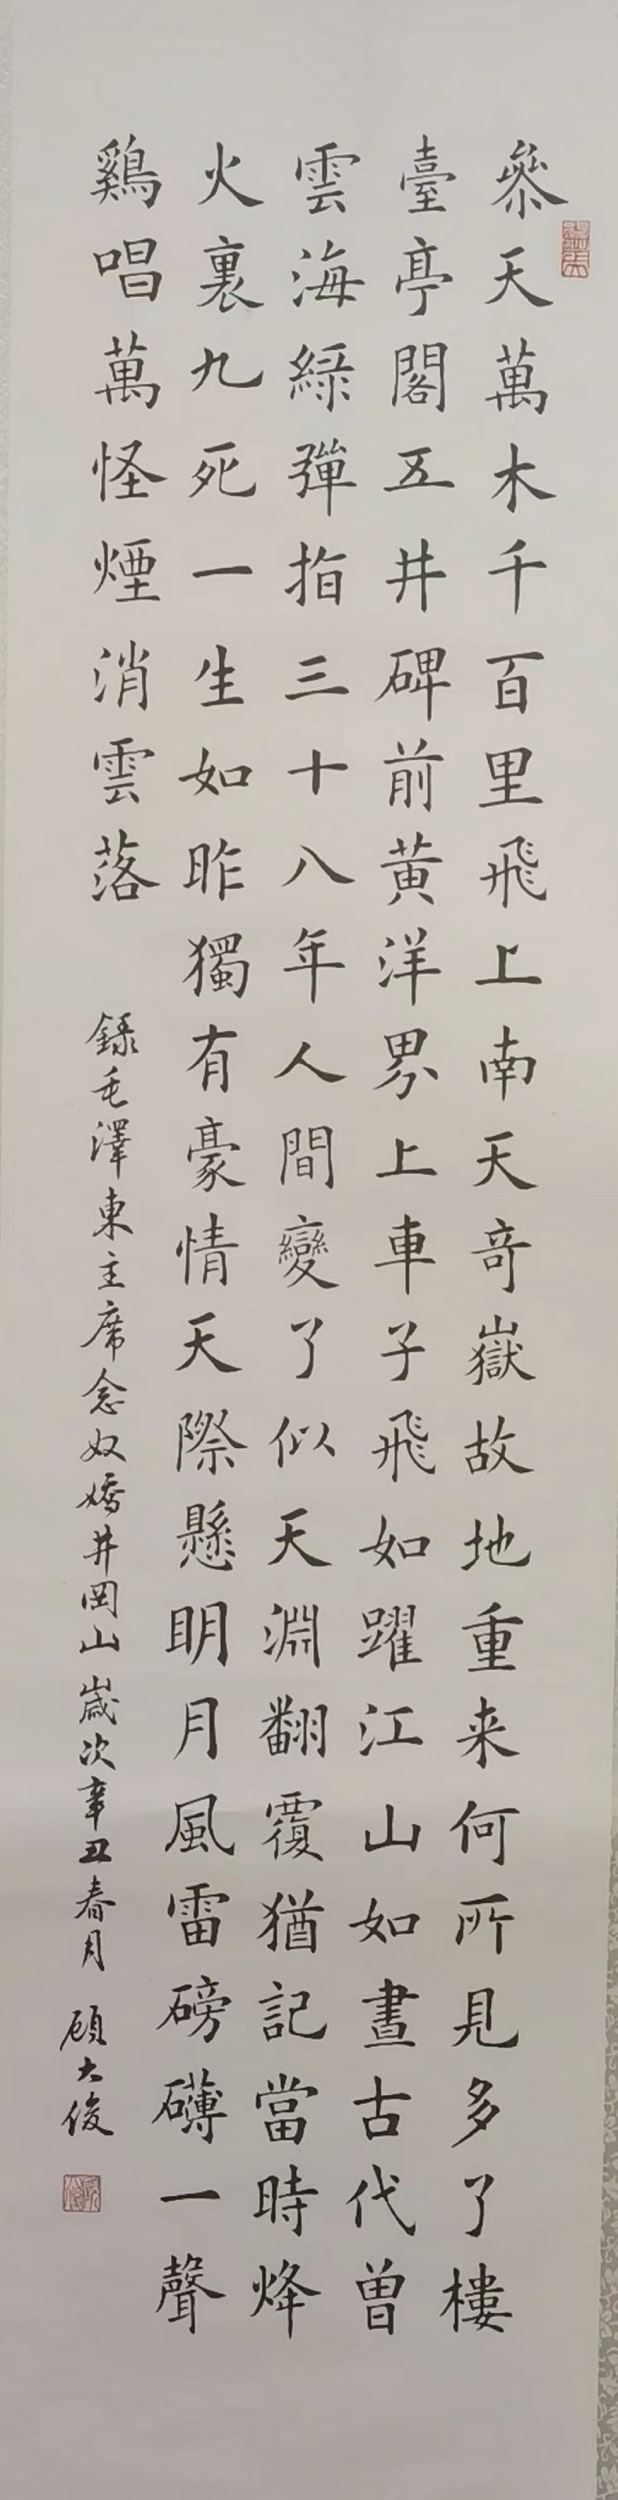 叅天萬木千百里飛上南天竒嶽故地重来何所見多了樓
臺亭閣五井碑前黄洋界上車子飛如躍江山如畫古代曾
雲海緑彈指三十八年人間變了似天淵翻覆猶記當時烽
火裏九死一生如昨獨有豪情天際懸明月風雷磅礴一聲
鷄唱萬怪煙消雲落
録毛澤東主席念奴嬌井岡山歲次辛丑春月
顧大俊